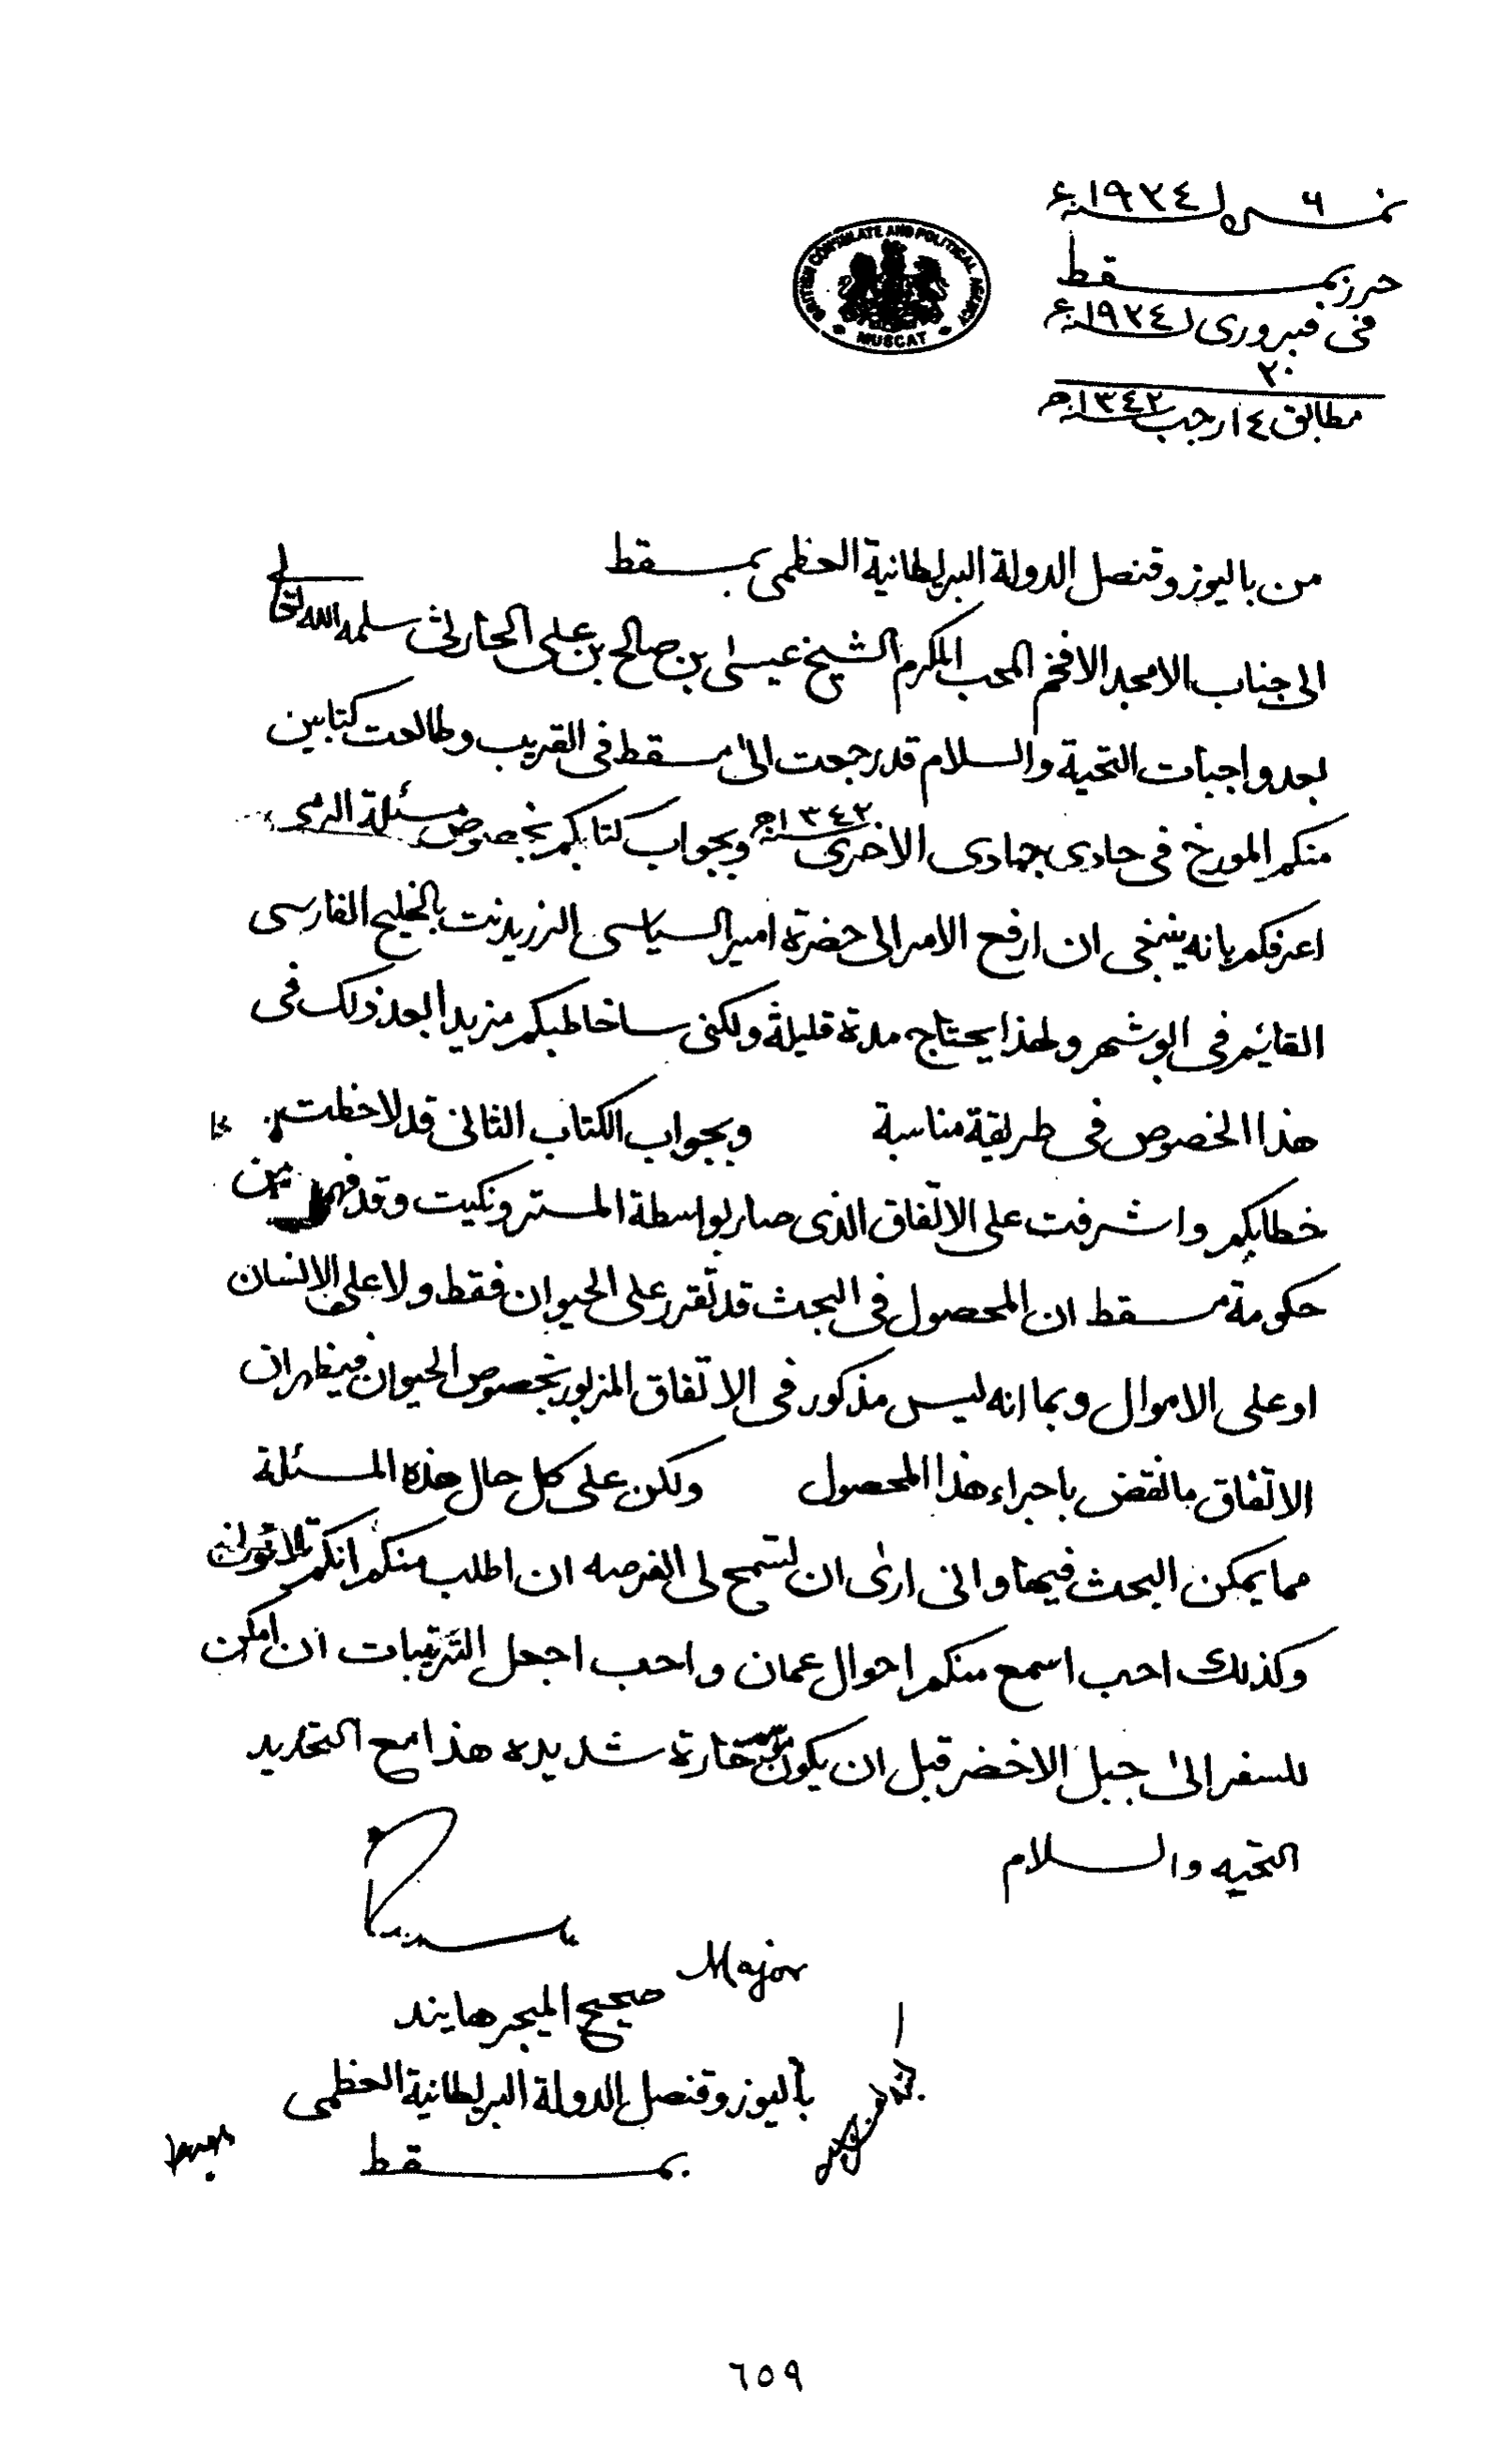 نمـ ٦ ـره لسنه ١٩٢٤ء
حرر بمسقط
فى فبرورى لسنه ١٩٢٤ء
٢٠
مطابق ١٤ رجب سنه ١٣٤٢ھ
BRITISH CONSULATE AND POLITICAL AGENCY
MUSCAT
من باليوز وقنصل الدولة البريطانية العظمى بمسقط
الى جناب الامجد الافخم المحب المكرم الشيخ عيسىٰ بن صالح بن على الحارثى سلمه الله تعالى
بعد واجبات التحية والسلام قد رجعت الى مسقط فى القريب وطالعت كتابين
منكم المورخ فى حادى جمادى الاخرى سنه ١٣٤٢ھ وبجواب كتابكم بخصوص مسئلة
اعرفكم بانه ينبغى ان ارفع الامر الى حضرة امير السياسى الرزيدنت بالخليج الفارسى
القائيم فى ابوشهر ولهذا يحتاج مدة قليلة ولكنى ساخاطبكم مزيدا بعد ذلك فى
هذا الخصوص فى طريقة مناسبة وبجواب الكتاب الثانى قد لاحظت
خطابكم واشرفت على الاتفاق الذى صار بواسطة المستر ونكيت وقد
حكومة مسقط ان المحصول فى البحث قد تقرر على الحيوان فقط ولا على الانسان
او على الاموال وبما انه ليس مذكور فى الاتفاق المزبور بخصوص الحيوان فيظهر ان
الاتفاق ما نقض باجراء هذا المحصول ولكن على كل حال هذه المسئلة
مما يمكن البحث فيها وانى ارىٰ ان تسمح لى الفرصه ان اطلب منكم انكم تلاقونى
وكذلك احب اسمع منكم احوال عمان واحب اجعل الترتيبات ان امكن
للسفر الىٰ جبل الاخضر قبل ان يكون حارة شديده هذا مع التحديد
التحيه والسلام
Major
صحيح الميجر هايند
باليوز وقنصل الدولة البريطانية العظمى
بمسقط
٦٥٩